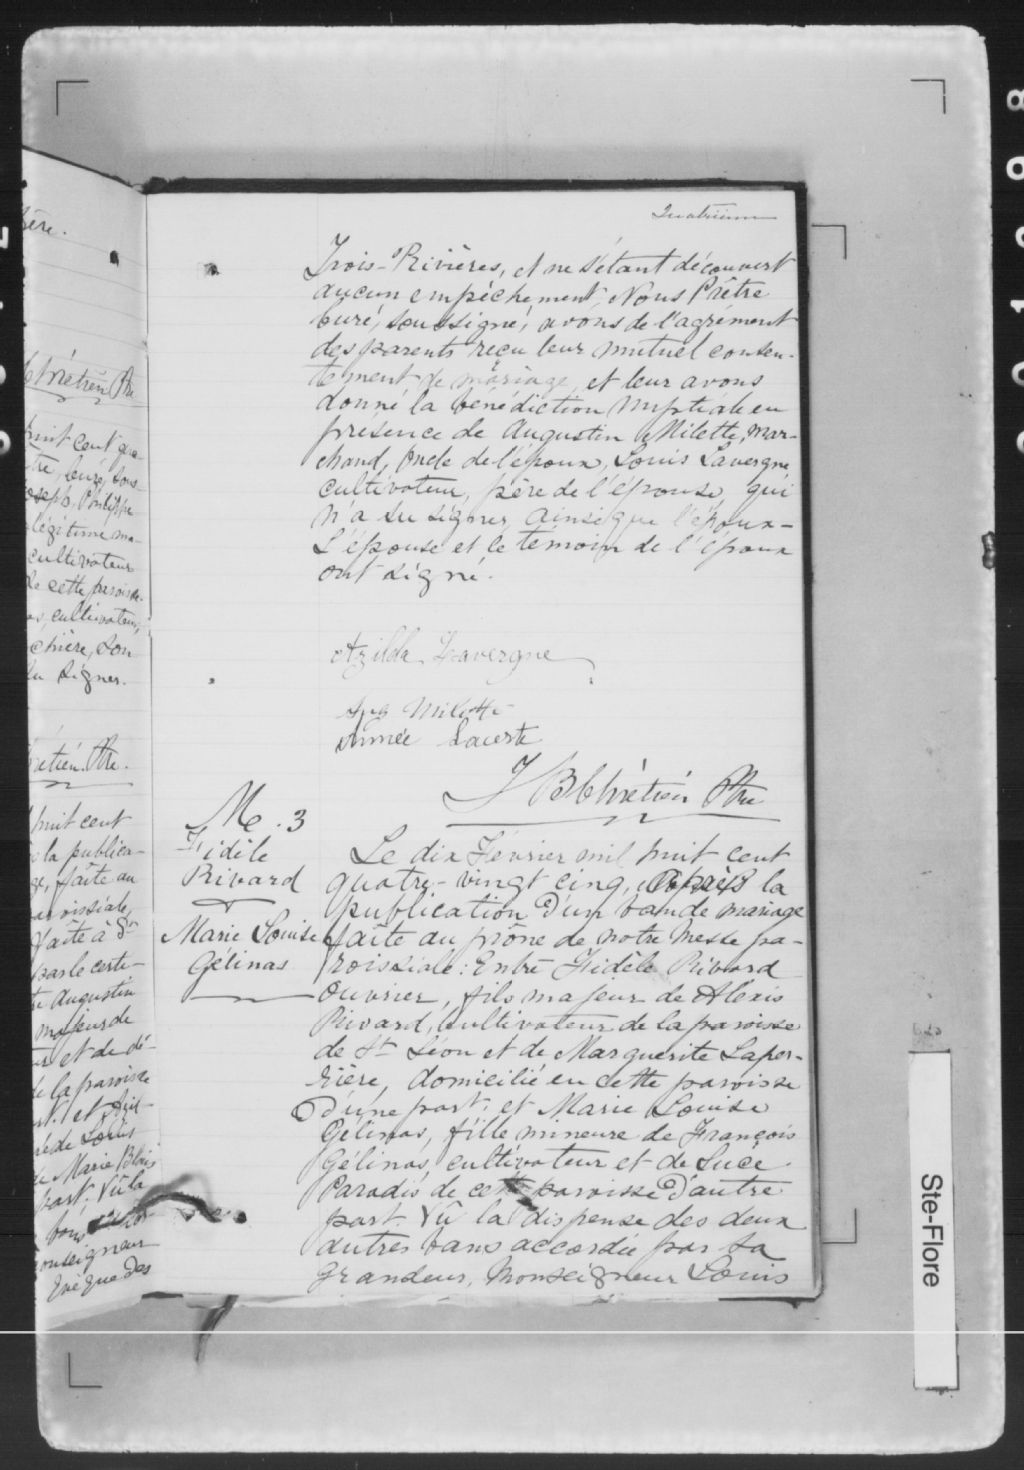 Quatrième
Trois-Rivières, et ne s'étant découvert
aucun empêchement, Nous Prêtre
Curé, soussigné, avons de l'agrément
des parents reçu leur mutuel consen-
tement de mariage, et leur avons
donné la bénédiction nuptiale en
présence de Augustin Milette, mar-
chand, Oncle de l'époux, Louis Lavergne
cultivateur, père de l'épouse, qui
n'a su signer, ainsi que l'époux-
L'épouse et le témoin de l'époux
ont signé.
Azilda Lavergne
Aug Milette
Aimée Lacerte
J B Chrétien Ptre
M. 3
Fidèle
Rivard
Marie Louise
Gélinas
Le dix Février mil huit cent
quatre-vingt cinq, après la
publication d'un ban de mariage
faite au prône de notre messe pa-
roissiale: Entre Fidèle Rivard
Ouvrier, fils majeur de Alexis
Rivard, cultivateur de la paroisse
de St Léon et de Marguerite Laper-
rière, domicilié en cette paroisse
D'une part; et Marie Louise
Gélinas, fille mineure de François
Gélinas, cultivateur et de Luce
Paradis de cette paroisse D'autre
part. Vû la dispense des deux
autres bans accordée par Sa
Grandeur, Monseigneur Louis
ère.
Chrétien Ptre
huit cent qua-
tre, Curé, sous-
Joseph, Philippe
légitime ma-
cultivateur
de cette paroisse.
cultivateur,
son
su signer.
Chrétien Ptre.
huit cent
la publica-
faite au
paroissiale,
faite à St
par le certi-
Augustin
majeur de
et de dé-
de la paroisse
et Azil-
de Louis
Marie Blais
part. Vû la
bans
Monseigneur
Evêque des
Ste-Flore